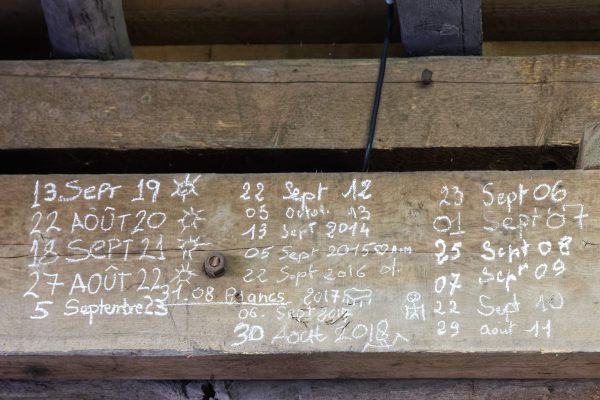 13 Sept 19
22 AOÛT 20
18 SEPT 21
27 AOÛT 22
5 Septembre 23
22 Sept 12
05 octob. 13
13 Sept 2014
05 Sept 2015
22 Sept 2016
31.08 Blancs 2017
06. Sept 2017
30 Août 2018
23 Sept 06
01 Sept 07
25 Sept 08
07 Sept 09
22 Sept 10
29 aout 11